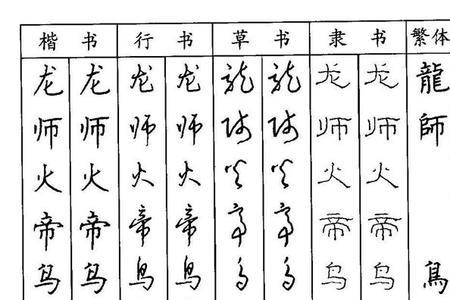 楷书 行书 草书 隶书 繁体
龙 龙 龙 龙 龙 龙 龙 龙 龍
师 师 师 师 师 师 师 师 師
火 火 火 火 火 火 火 火
帝 帝 帝 帝 帝 帝 帝 帝
鸟 鸟 鸟 鸟 鸟 鸟 鸟 鸟 鳥